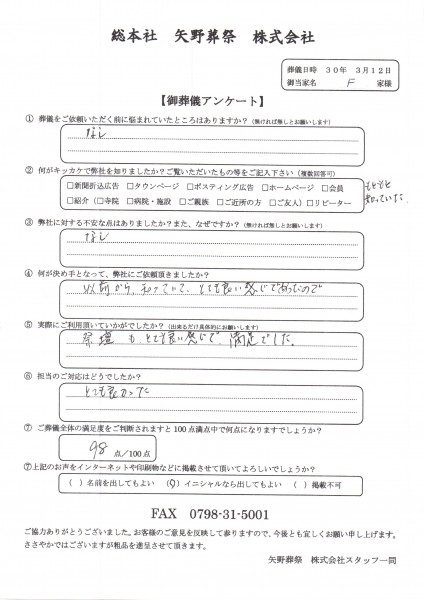 総本社　矢野葬祭　株式会社
葬儀日時　３０年　３月１２日
御当家名　F　家様
【御葬儀アンケート】
① 葬儀をご依頼いただく前に悩まれていたところはありますか？（無ければ無しとお願いします）
なし
② 何がキッカケで弊社を知りましたか？ご覧いただいたもの等をご記入下さい（複数回答可）
□新聞折込広告　□タウンページ　□ポスティング広告　□ホームページ　□会員
□紹介（□寺院　□病院・施設　□ご親族　□ご近所の方　□ご友人）□リピーター
もともと
知っていた
③ 弊社に対する不安な点はありましたか？また、なぜですか？（無ければ無しとお願いします）
なし
④ 何が決め手となって、弊社にご依頼頂きましたか？
以前から、知っていて、とても良い感じであったので
⑤ 実際にご利用頂いていかがでしたか？（出来るだけ具体的にお願いします）
祭壇も、とても良い感じで満足でした。
⑥ 担当のご対応はどうでしたか？
とても良かった
⑦ ご葬儀全体の満足度をご判断されますと100点満点中で何点になりますでしょうか？
98　点／100点
⑦上記のお声をインターネットや印刷物などに掲載させて頂いてよろしいでしょうか？
（　）名前を出してもよい　（○）イニシャルなら出してもよい　（　）掲載不可
FAX　0798-31-5001
ご協力ありがとうございました。お客様のご意見を反映して参りますので、今後とも宜しくお願い申し上げます。
ささやかではございますが粗品を進呈させて頂きます。
矢野葬祭　株式会社スタッフ一同